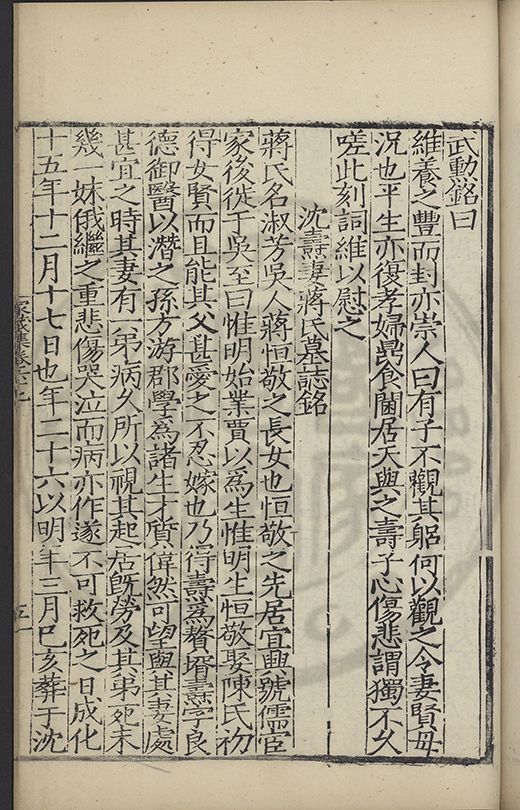 武動銘曰
維養之豐而封亦崇人曰有子不觀其躬何以觀之令妻賢母
況也平生亦復孝婦鼎食閫居天與之壽子心傷悲謂獨不久
嗟此刻詞維以慰之
沈壽妻蔣氏墓誌銘
蔣氏名淑芳吳人蔣恒敬之長女也恒敬之先居宜興號儒宦
家後徙于吳至曰惟明始業賈以為生惟明生恒敬娶陳氏初
得女賢而且能其父甚愛之不忍嫁也乃得壽為贅壻壽字良
德御醫以潛之孫方游郡學為諸生才質偉然可望與其妻處
甚宜之時其妻有一弟病久所以視其起居旣勞及其弟死未
幾一妹俄繼之重悲傷哭泣而病亦作遂不可救死之日成化
十五年十二月十七日也年二十六以明年三月巳亥葬于沈
家藏集卷六十